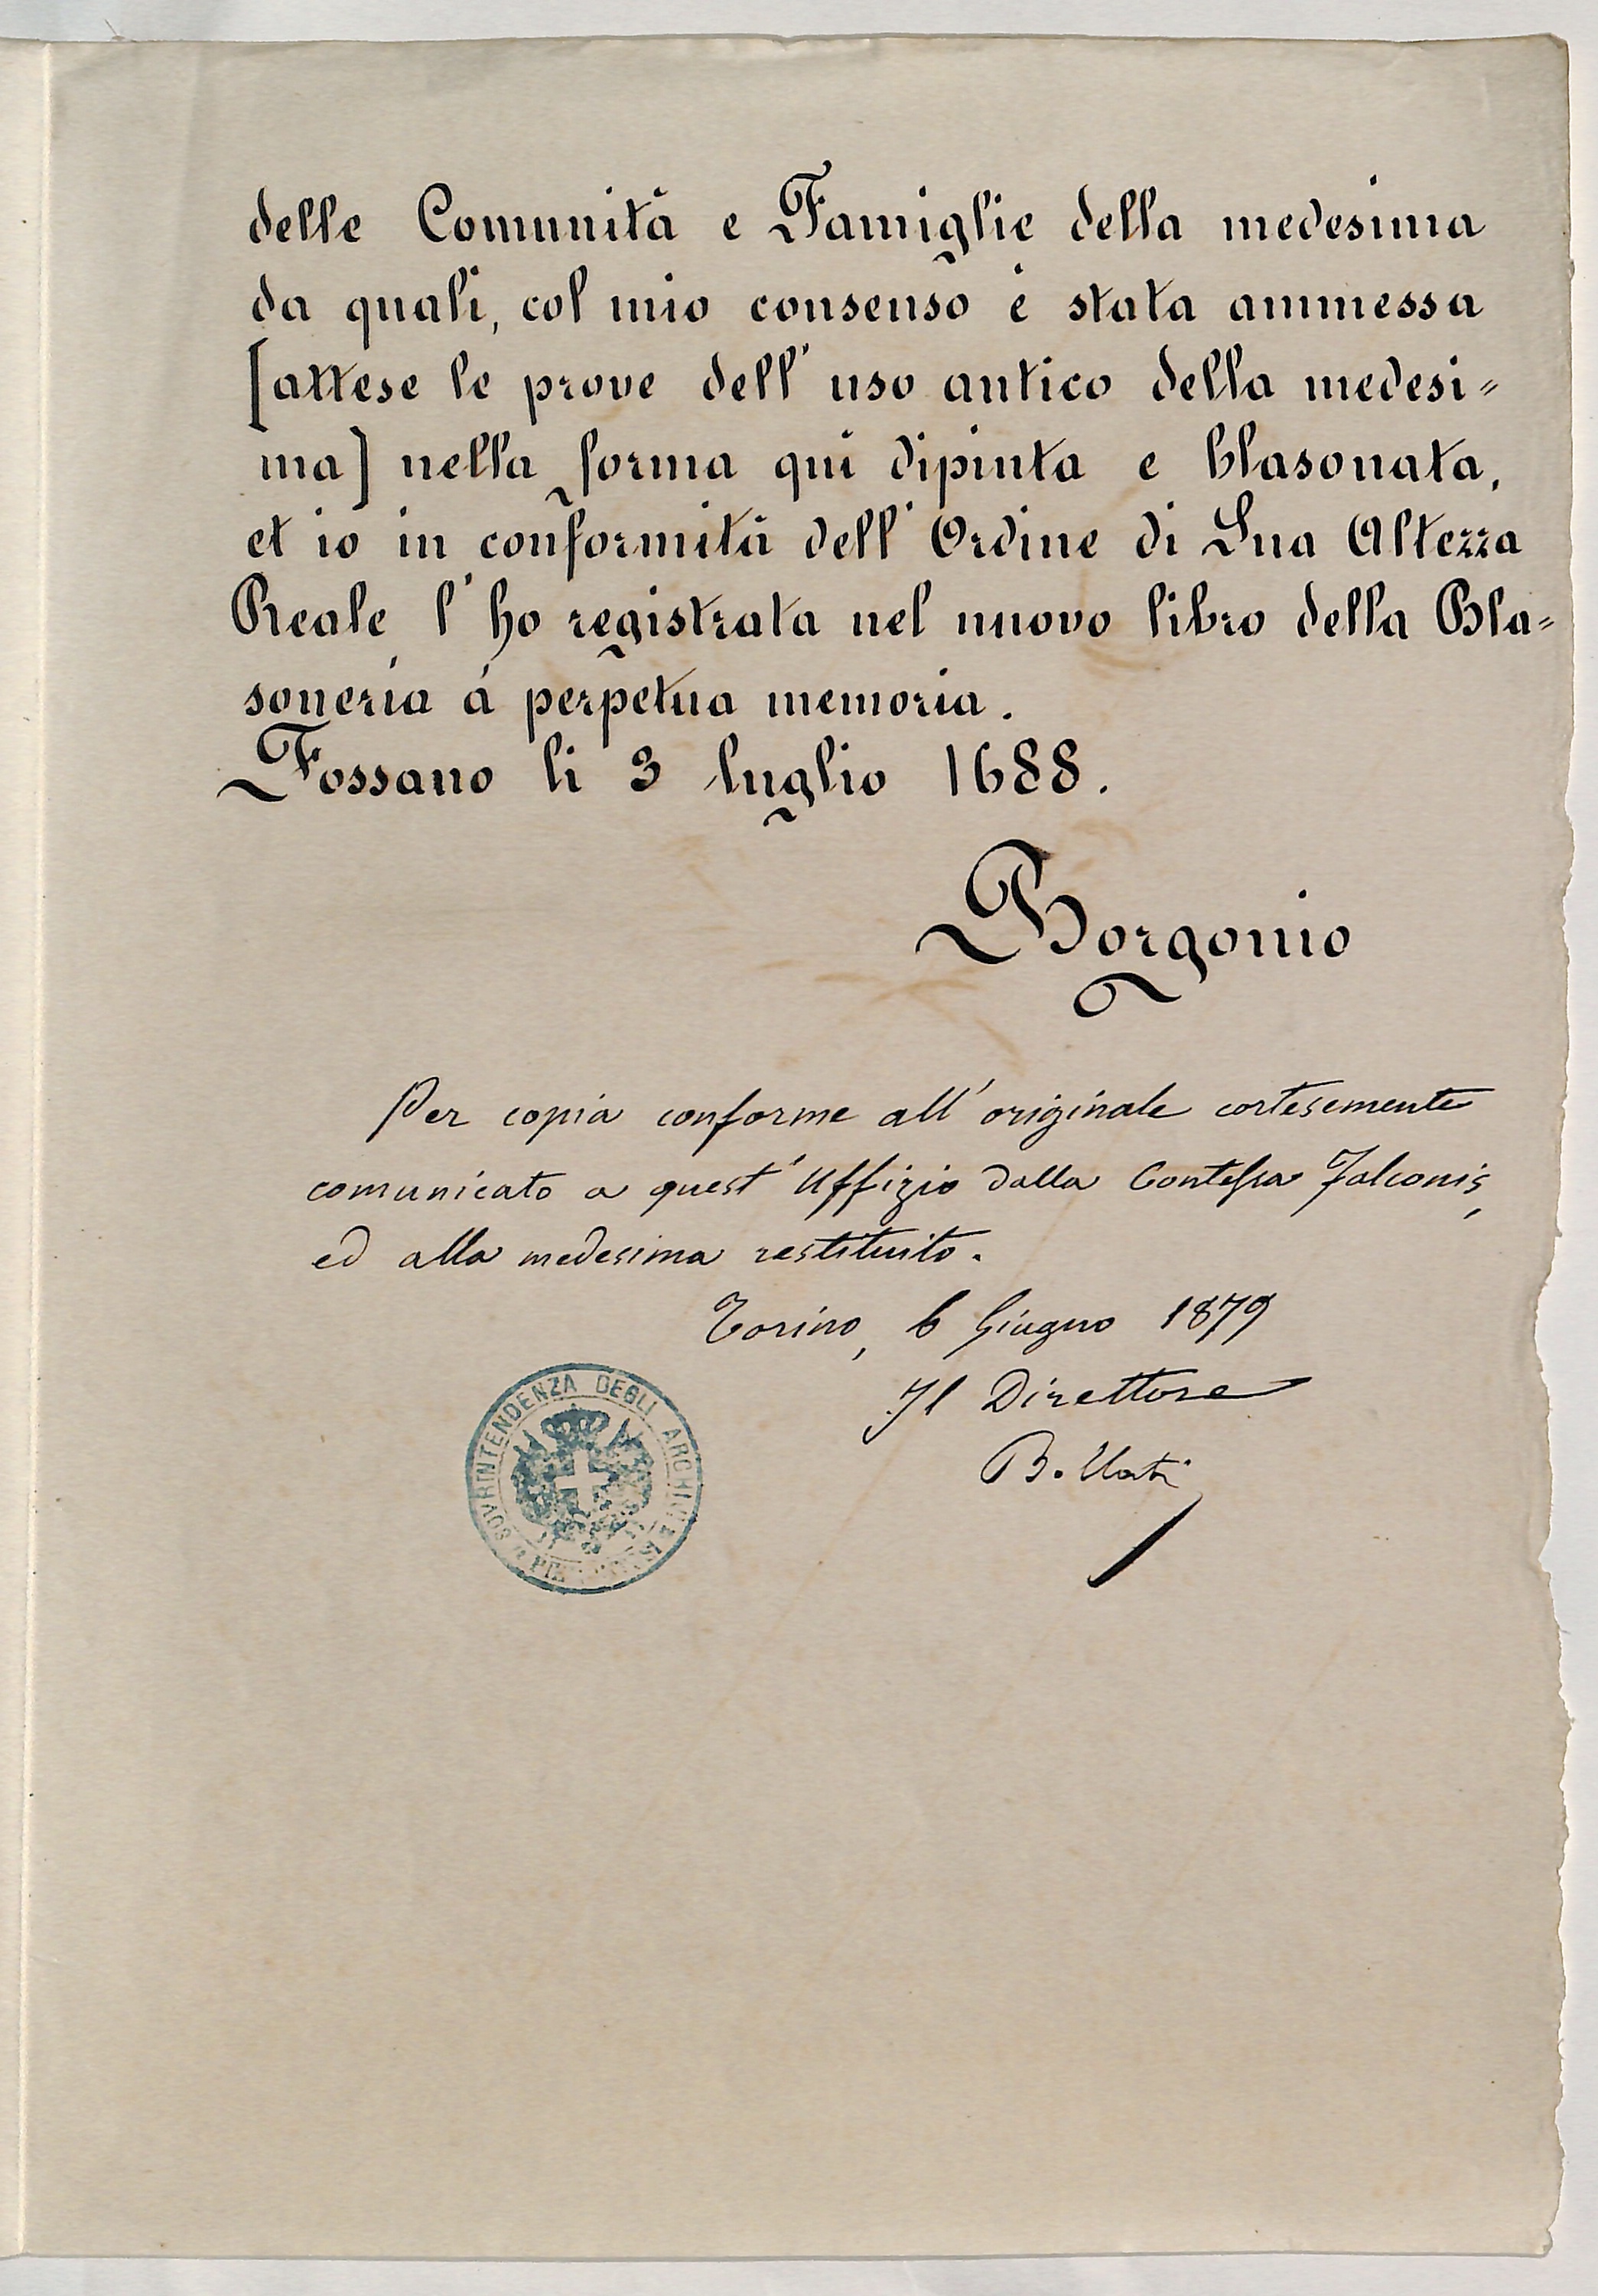 delle Comunità e Famiglie della medesima
da quali, col mio consenso è stata ammessa
[attese le prove dell' uso antico della medesi=
ma] nella forma qui dipinta e blasonata,
et io in conformità dell' Ordine di Sua Altezza
Reale l' ho registrata nel nuovo libro della Bla=
soneria á perpetua memoria.
Fossano li 3 luglio 1688.
Borgonio
Per copia conforme all' originale cortesemente
comunicato a quest' Uffizio dalla Contessa Falconis,
ed alla medesima restituito.
Torino, 6 Giugno 1879
Il Direttore
Bollati
SOVRINTENDENZA DEGLI ARCHIVI